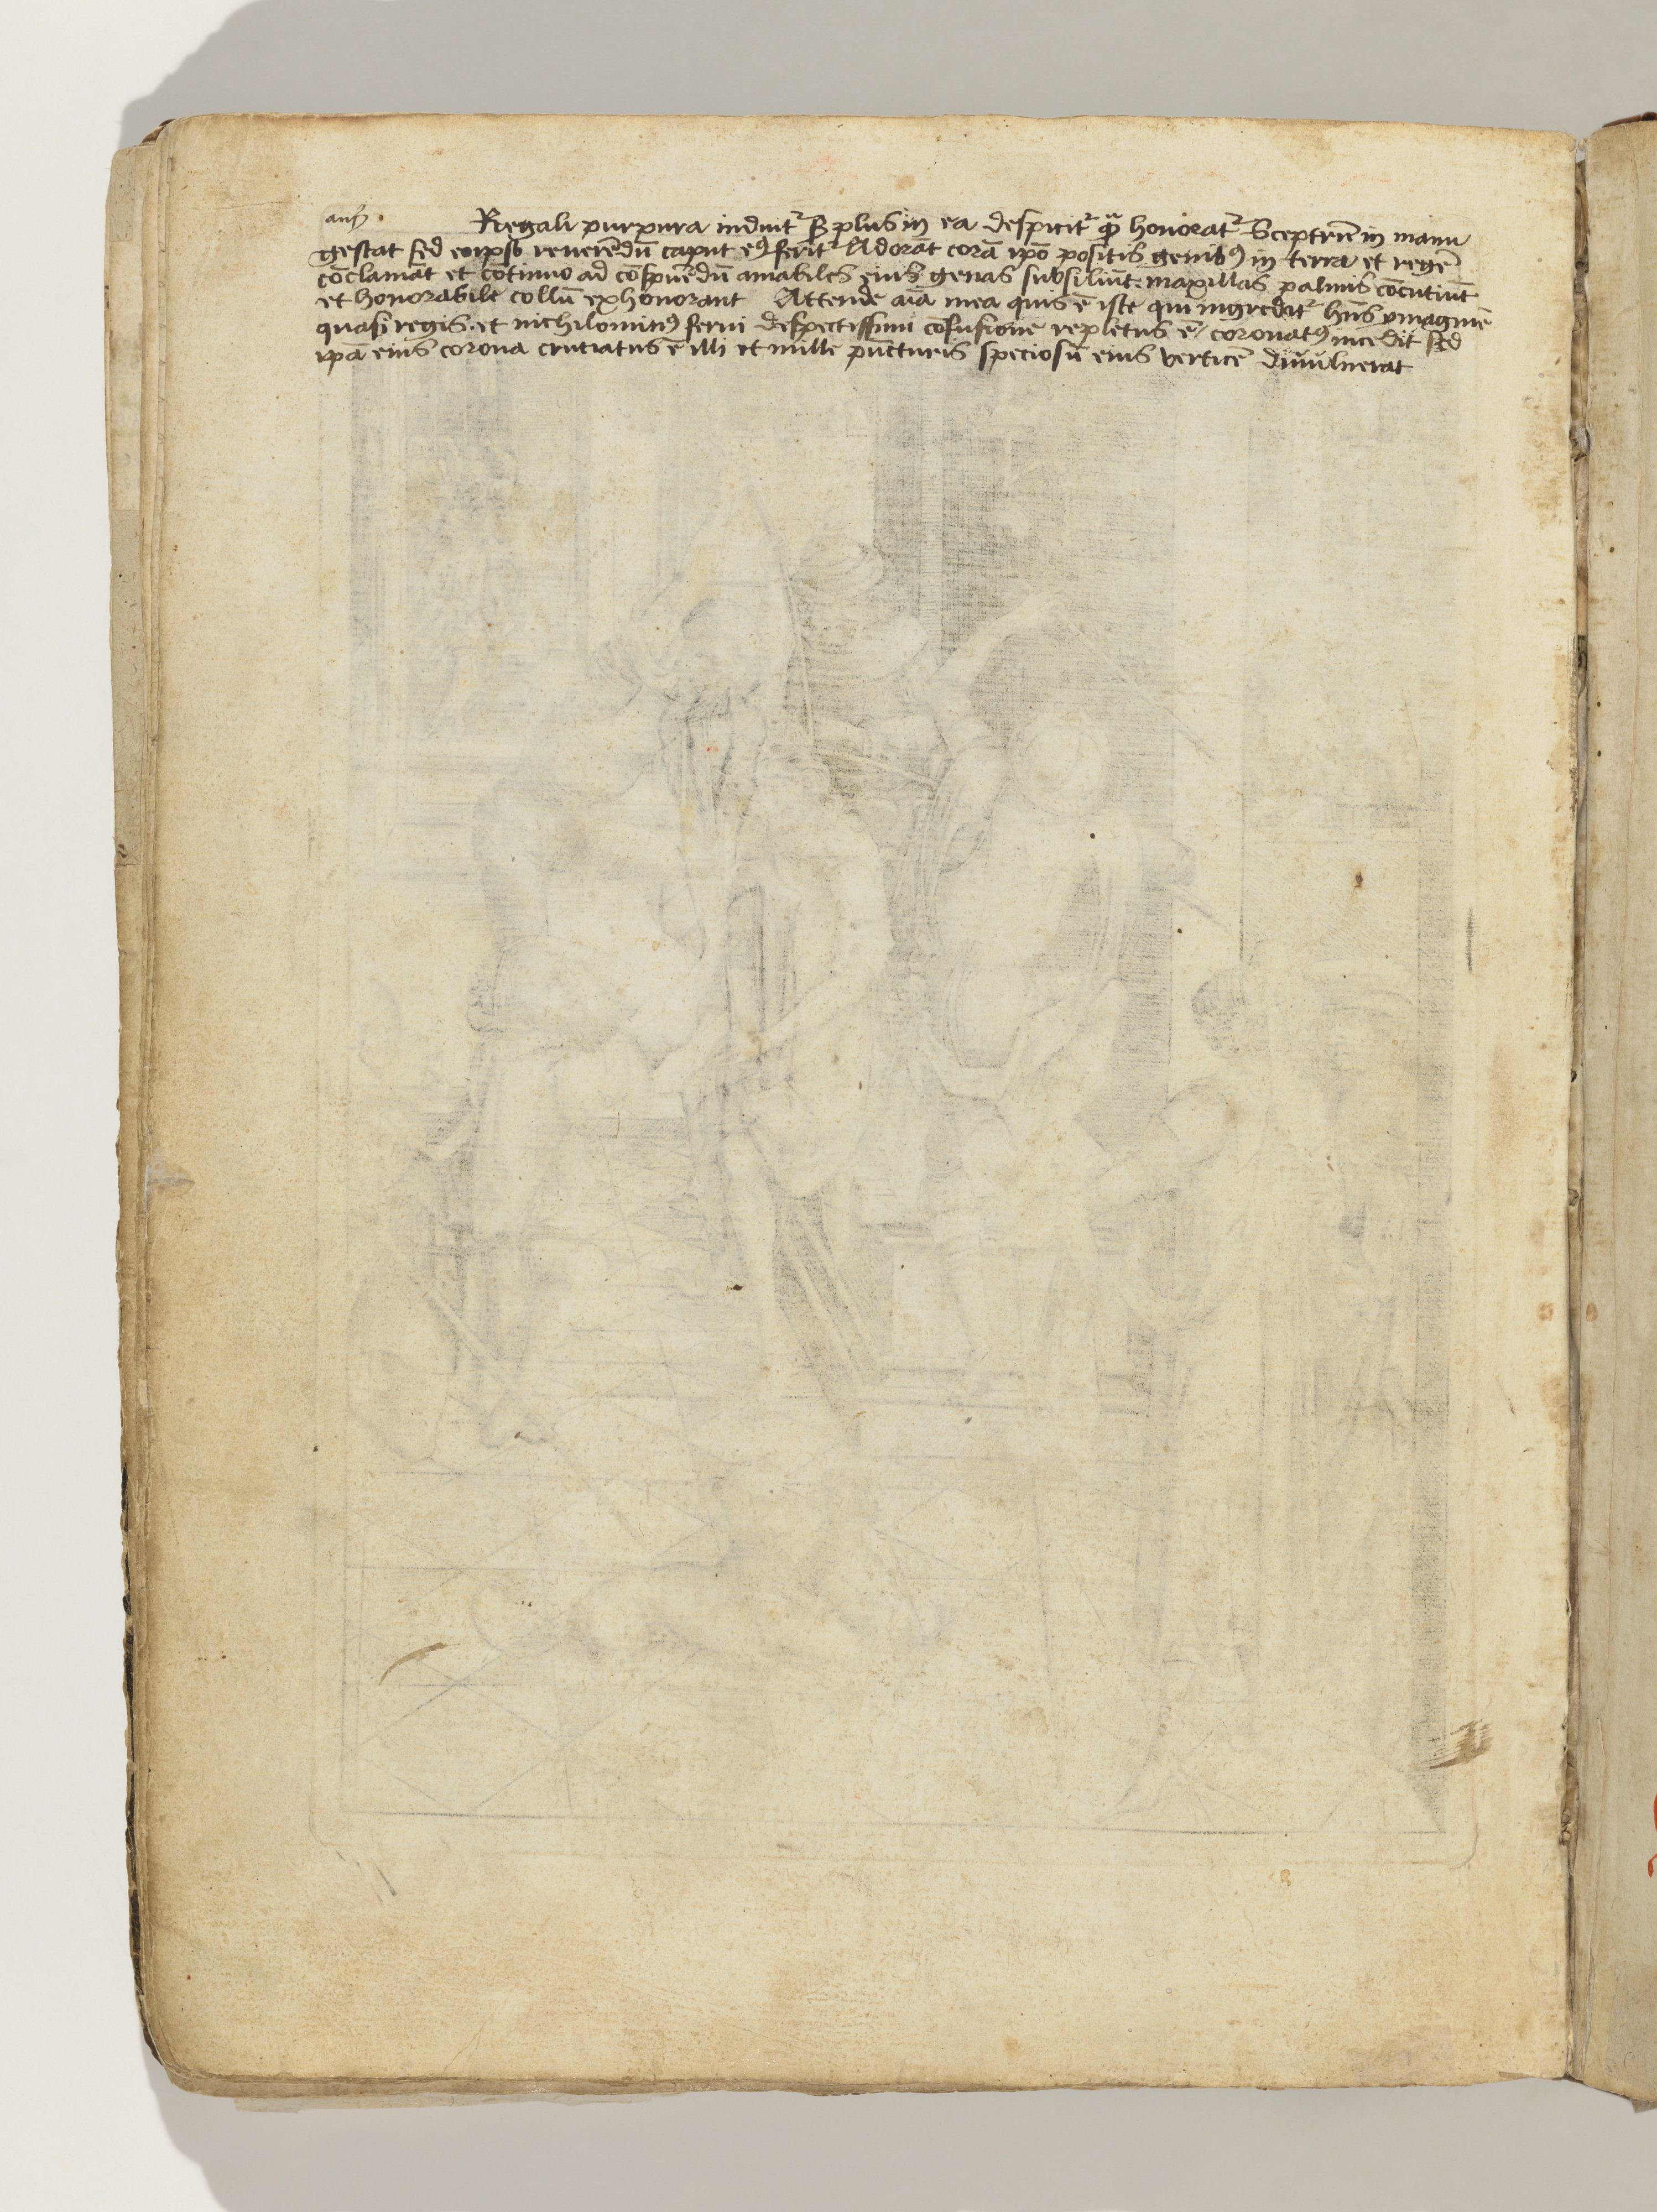 aug⁹. Regali purpura induit᷑ sꝫ plus in ea despicit᷑ qͣꝫ honorat᷑ Sceptrū in manu
gestat sed eoipso reuerēdū caput eꝰ ferit᷑ Adorāt corā ip̄o positis genibꝰ in terra et regē
cōclamāt et cōtinuo ad cōspuēdū amabiles eius genas subsiliūt. maxillas palmis cōcutiūt
et honorabile collū exhonorant Attende aīa mea quis ē iste qui ingredit᷑ hn̄s ymaginē
quasi regis. et nichilominꝰ serui despectissimi cōfusione repletus ē / coronatꝰ incedit sed
ip̄a eius corona cruciatus ē illi et mille pūcturis speciosū eius verticē diuulnerat